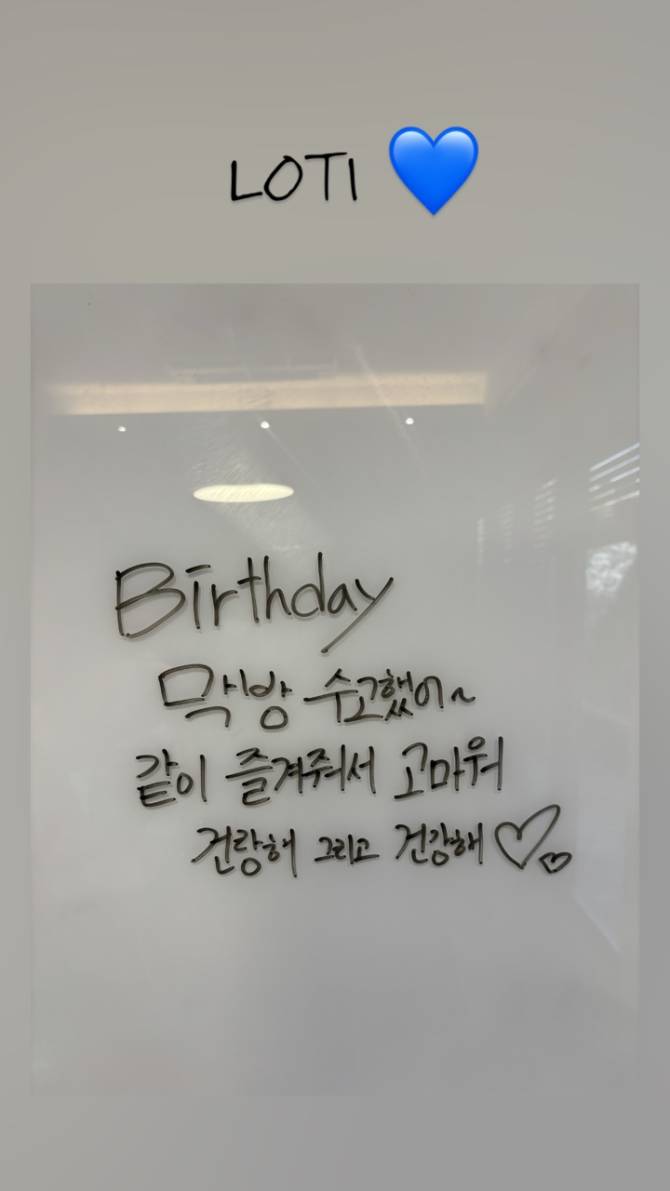 LOTI 💙
Birthday
막방 수고했어~
같이 즐겨줘서 고마워
건랑해 그리고 건강해♡♡